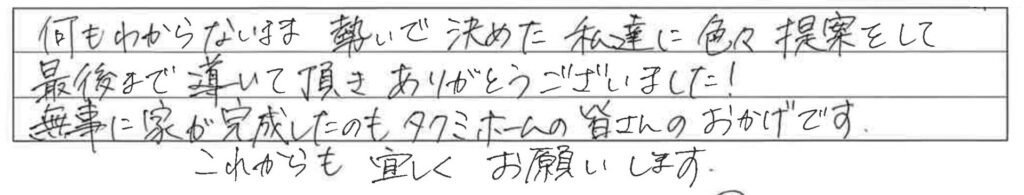 何もわからないまま 勢いで 決めた 私達に 色々 提案をして
最後まで 導いて 頂き ありがとうございました!
無事に 家が 完成したのも タクミホームの 皆さんの おかげです.
これからも 宜しく お願いします.